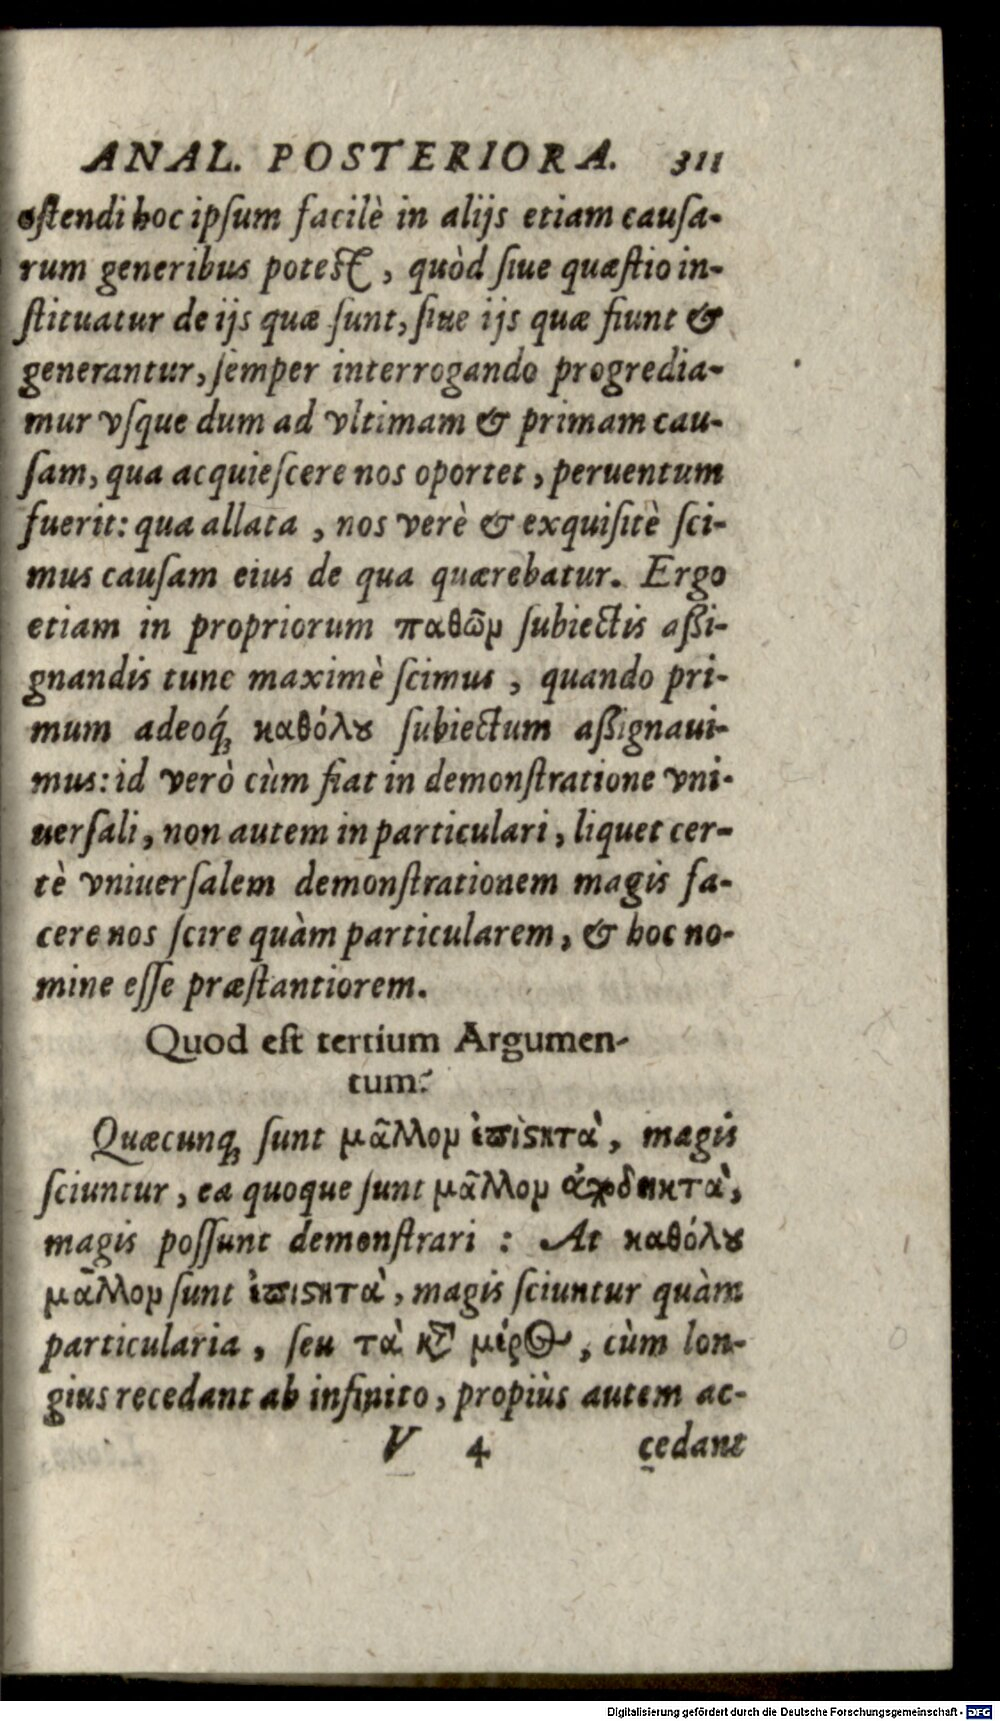 ANAL. POSTERIORA. 311
oſtendi hoc ipſum facilè in alijs etiam cauſa-
rum generibus poteſt, quòd ſiue quæſtio in-
ſtituatur de ijs quæ ſunt, ſiue ijs quæ fiunt &
generantur, ſemper interrogando progredia-
mur vſque dum ad vltimam & primam cau-
ſam, qua acquieſcere nos oportet, peruentum
fuerit: qua allata, nos verè & exquiſitè ſci-
mus cauſam eius de qua quærebatur. Ergo
etiam in propriorum παθῶμ ſubiectis aßi-
gnandis tunc maximè ſcimus, quando pri-
mum adeoq́; καθόλȣ ſubiectum aßignaui-
mus: id verò cùm fiat in demonſtratione vni-
uerſali, non autem in particulari, liquet cer-
tè vniuerſalem demonſtrationem magis fa-
cere nos ſcire quàm particularem, & hoc no-
mine eſſe præſtantiorem.
Quod eſt tertium Argumen-
tum?
Quæcunq; ſunt μᾶλλομ ἐπιϛητὰ, magis
ſciuntur, ea quoque ſunt μᾶλλομ ἀποδεικτὰ,
magis poſſunt demonſtrari : At καθόλȣ
μᾶλλομ ſunt ἐπιϛητὰ, magis ſciuntur quàm
particularia, ſeu τὰ κϗ μέρος, cùm lon-
gius recedant ab infinito, propiùs autem ac-
V 4 cedant
Digitalisierung gefördert durch die Deutsche Forschungsgemeinschaft - DFG